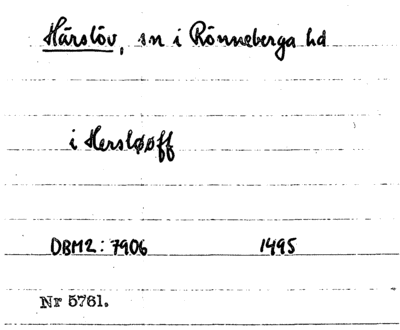 Härslöv, sn i Rönneberga hd
i Hersløøff
DBM2: 7906 1495
Nr 5761.